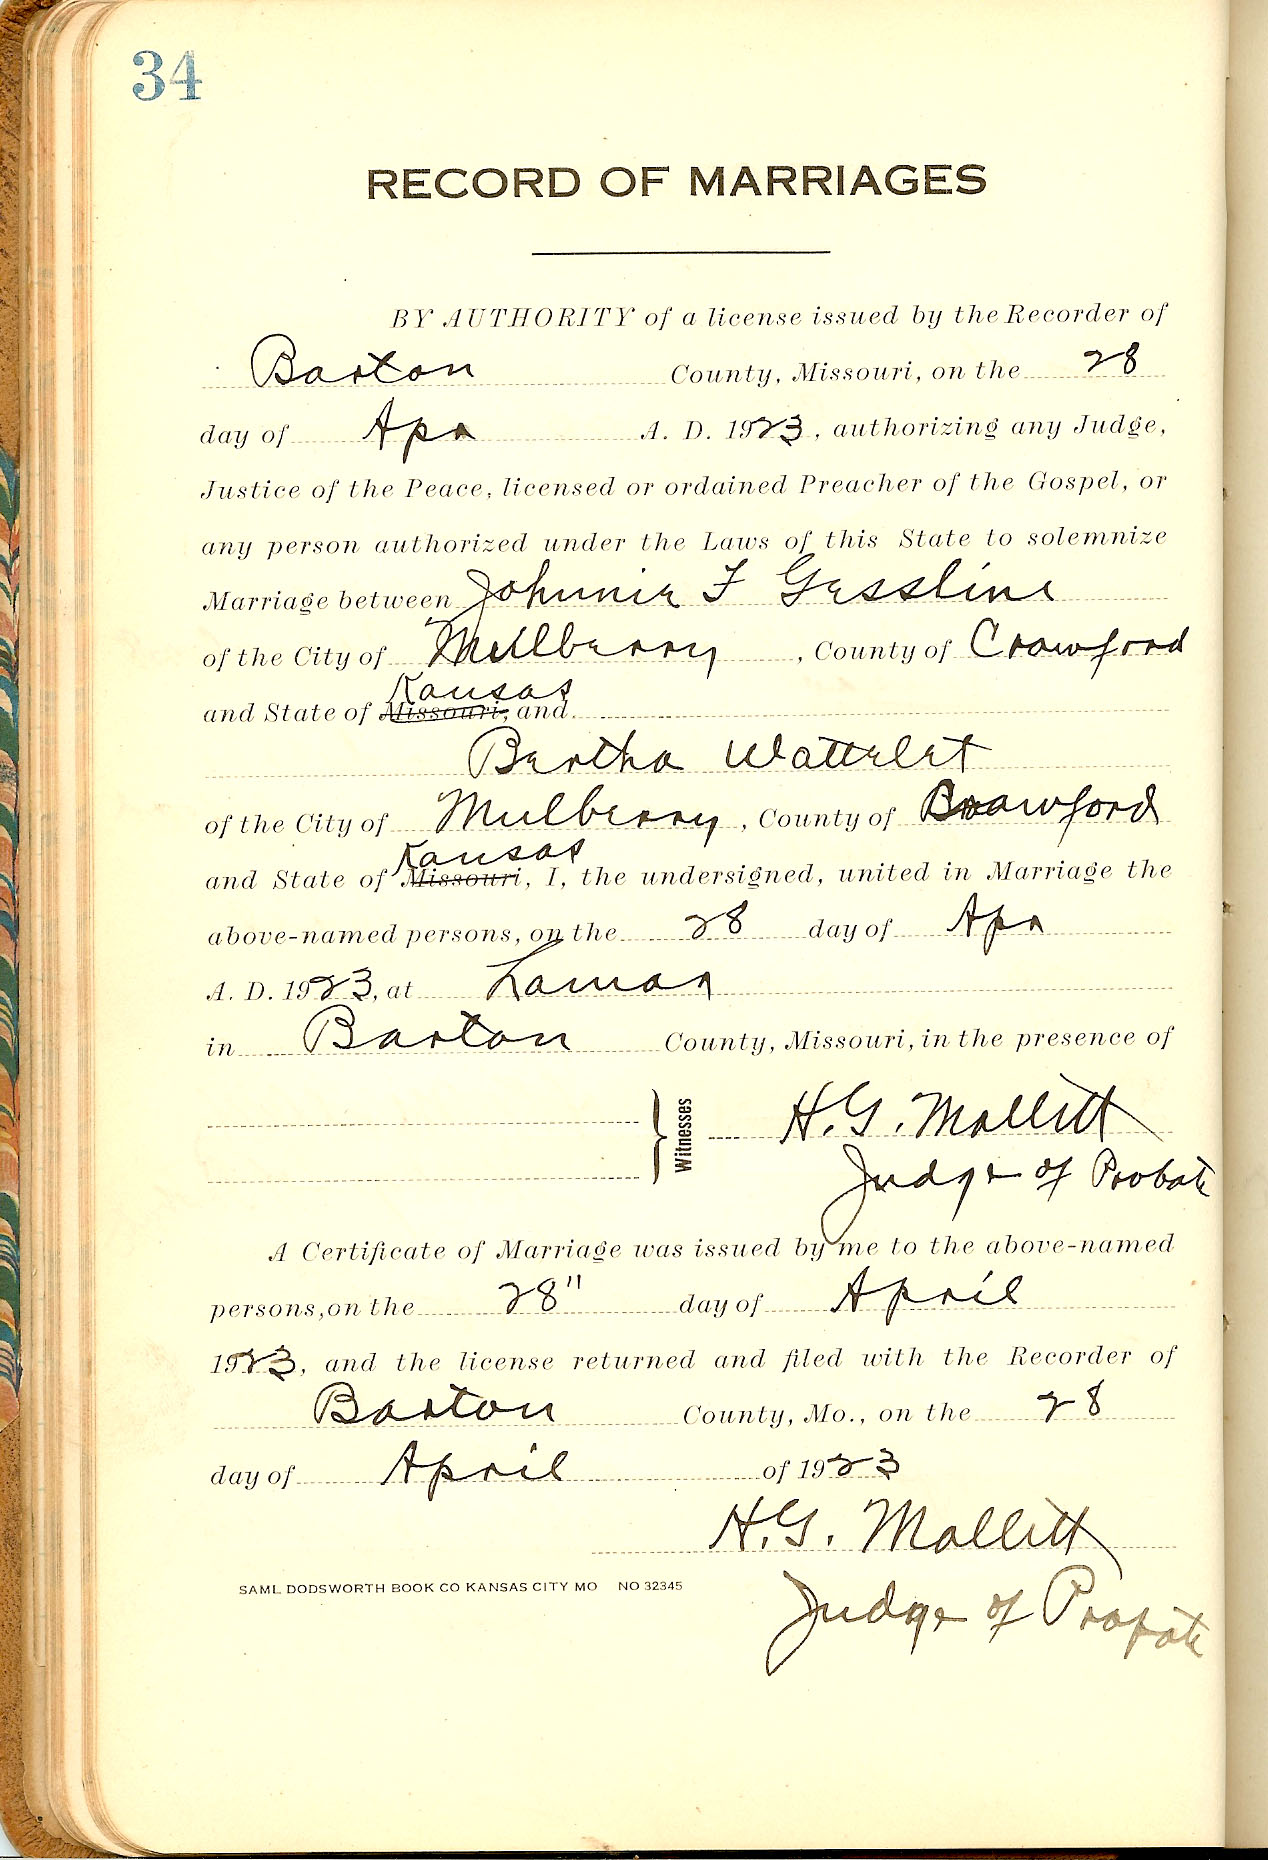 34
RECORD OF MARRIAGES
BY AUTHORITY of a license issued by the Recorder of
Barton County, Missouri, on the 28
day of Apr A. D. 1923, authorizing any Judge,
Justice of the Peace, licensed or ordained Preacher of the Gospel, or
any person authorized under the Laws of this State to solemnize
Marriage between Johnnie F Gessline
of the City of Mulberry, County of Crawford
Kansas
and State of Missouri, and
Bertha Watterlet
of the City of Mulberry, County of Crawford
Kansas
and State of Missouri, I, the undersigned, united in Marriage the
above-named persons, on the 28 day of Apr
A. D. 1923, at Lamar
in Barton County, Missouri, in the presence of
Witnesses H. G. Mollitt
Judge of Probate
A Certificate of Marriage was issued by me to the above-named
persons, on the 28" day of April
1923, and the license returned and filed with the Recorder of
Barton County, Mo., on the 28
day of April of 1923
H. G. Mollitt
Judge of Probate
SAML DODSWORTH BOOK CO KANSAS CITY MO NO 32345